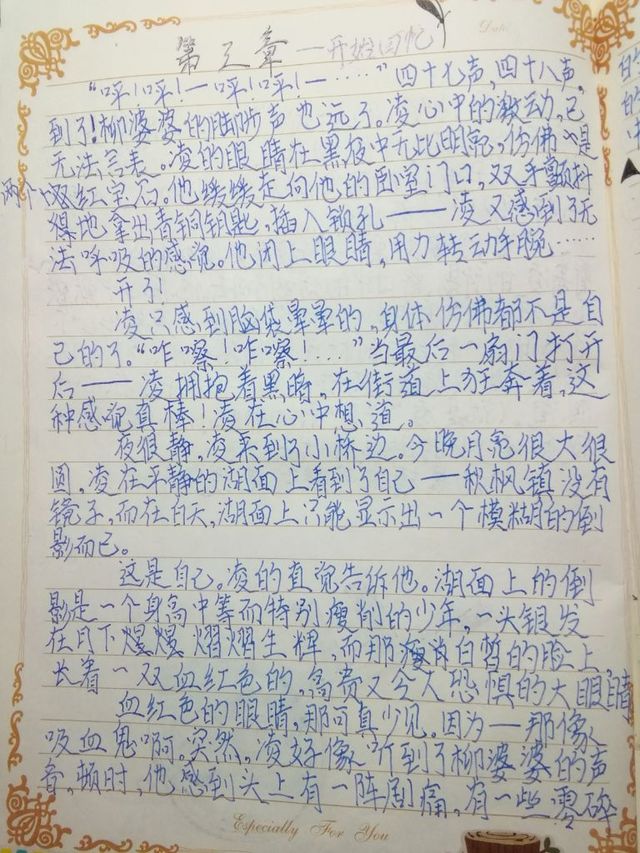 Date
第三章 — 开始回忆
“呯！呯！— 呯！呯！— ……”四十七声，四十八声，
到了！柳婆婆的脚步声也远了。凌心中的激动，已
无法言表。凌的眼睛在黑夜中无比明亮，仿佛是
两个血红宝石。他缓缓走向他的卧室门口，双手颤抖
得地拿出青铜钥匙，插入锁孔——凌又感到了无
法呼吸的感觉。他闭上眼睛，用力转动手腕……
开了！
凌只感到脑袋晕晕的，身体仿佛都不是自
己的了。“咋嚓！咋嚓！……”当最后一扇门打开
后——凌拥抱着黑暗，在街道上狂奔着，这
种感觉真棒！凌在心中想道。
夜很静，凌来到了小桥边。今晚月亮很大很
圆，凌在平静的湖面上看到了自己——秋枫镇没有
镜子，而在白天，湖面上只能显示出一个模糊的倒
影而已。
这是自己。凌的直觉告诉他。湖面上的倒
影是一个身高中等而特别瘦削的少年，一头银发
在月下熠熠生辉，而那瘦削白皙的脸上，
长着一双血红色的，高贵又令人恐惧的大眼睛
血红色的眼睛，那可真少见。因为——那像
吸血鬼啊。突然，凌好像听到了柳婆婆的声
音，顿时，他感到头上有一阵剧痛，有一些零碎
Especially For You